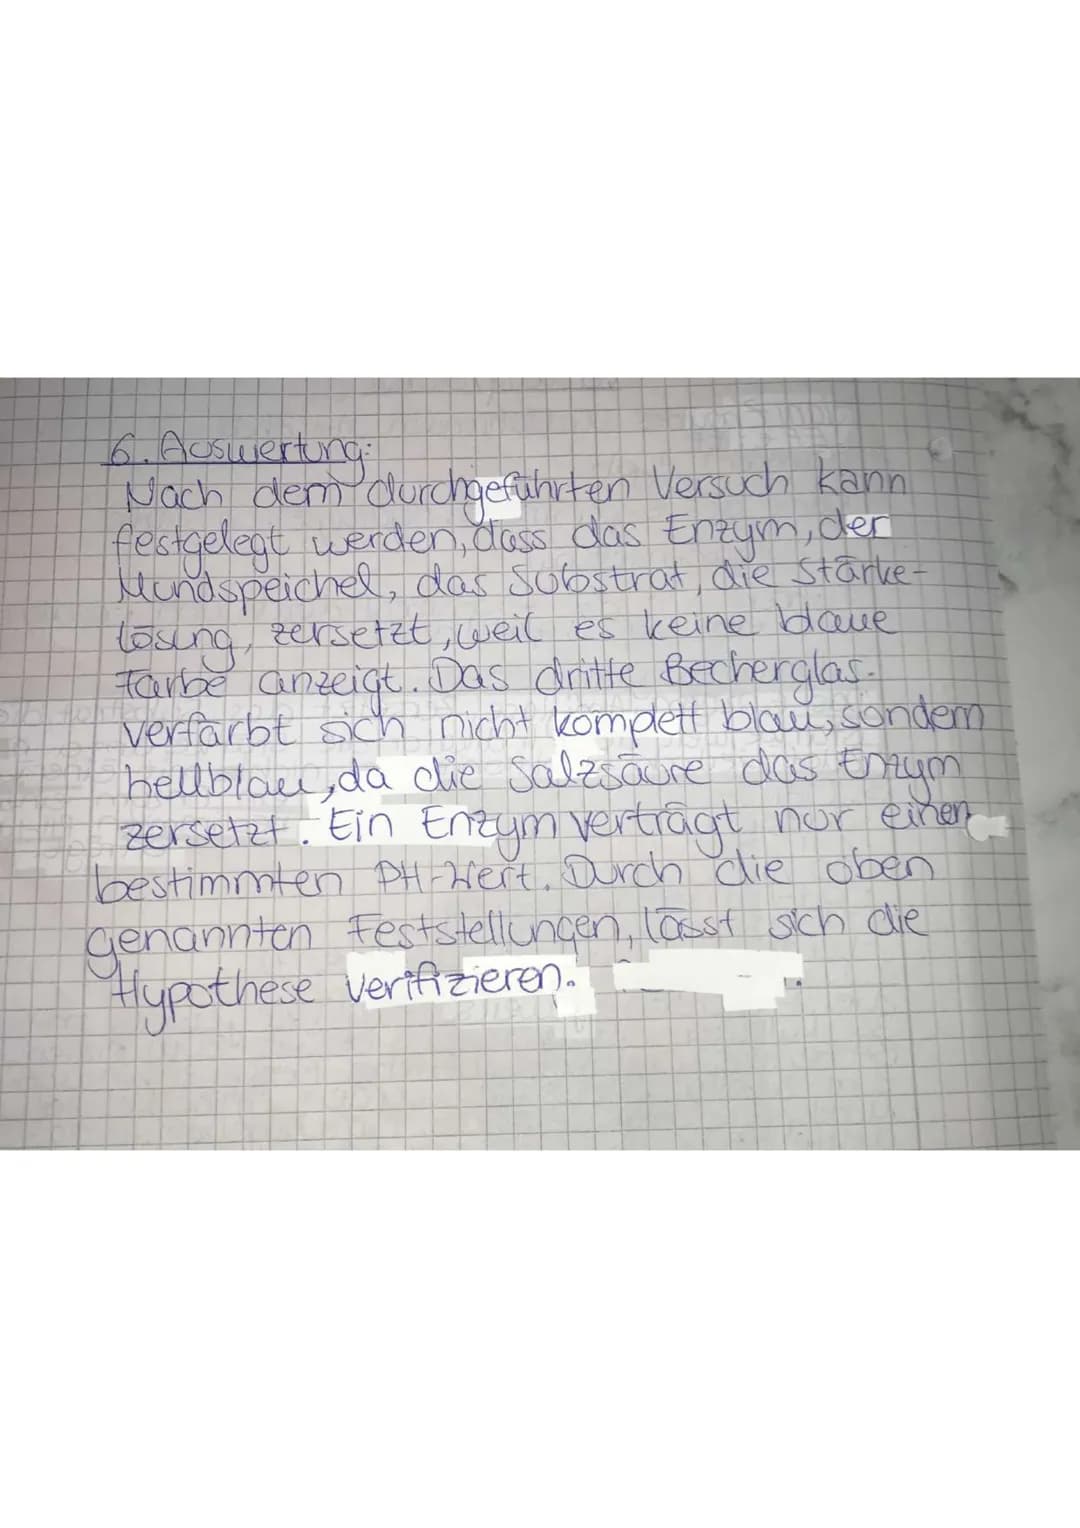 6. Auswertung:
Nach dem durchgeführten Versuch kann
festgelegt werden, dass das Enzym, der
Mundspeichel, das Substrat, die Stärke-
lösung, zersetzt, weil es keine blaue
Farbe anzeigt. Das dritte Becherglas
verfärbt sich nicht komplett blau, sondern
hellblau, da die Salzsäure das Enzym
zersetzt. Ein Enzym verträgt nur einen
bestimmten PH-Wert. Durch die oben
genannten Feststellungen, lässt sich die
Hypothese verifizieren.